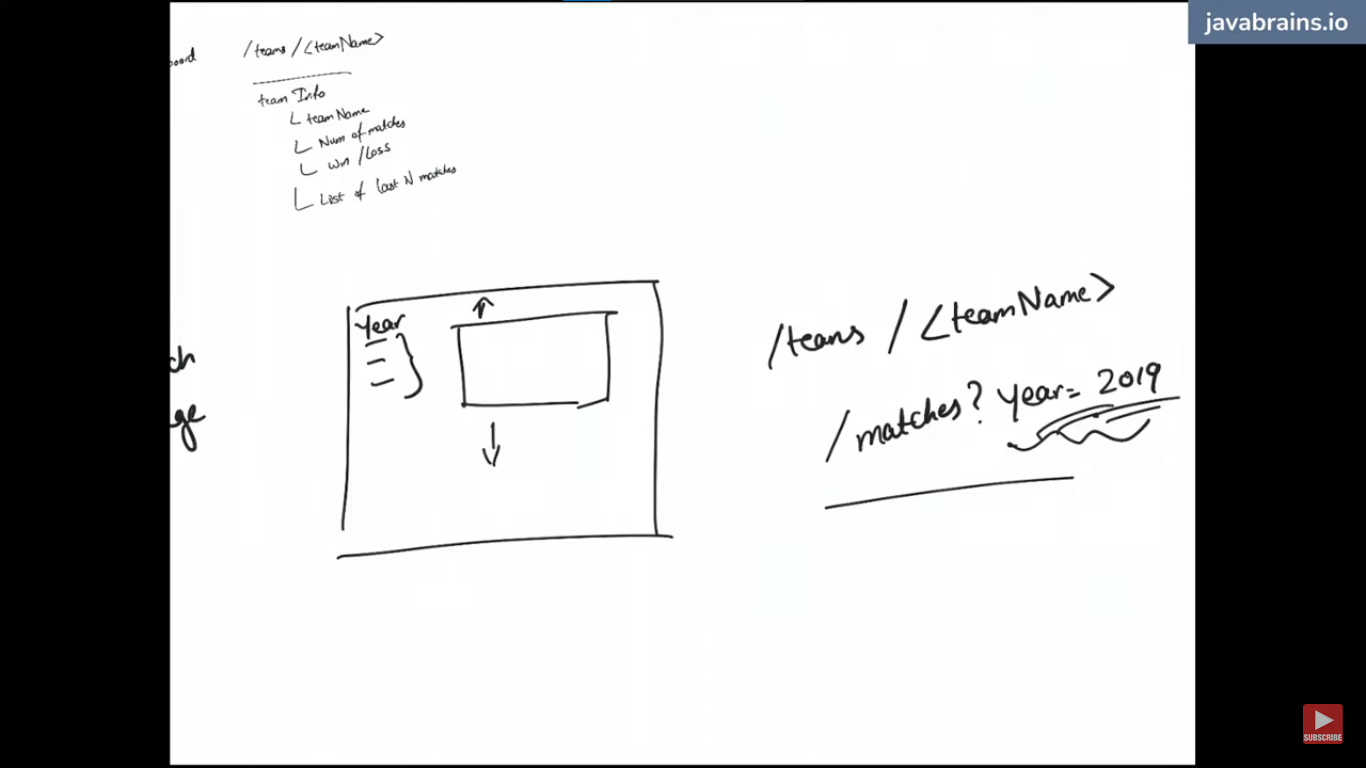 javabrains.io
/teams/<teamName>
team Info
teamName
Num of matches
Win/Loss
List of last N matches
Year
/teams/<teamName>
/matches? year=2019
SUBSCRIBE